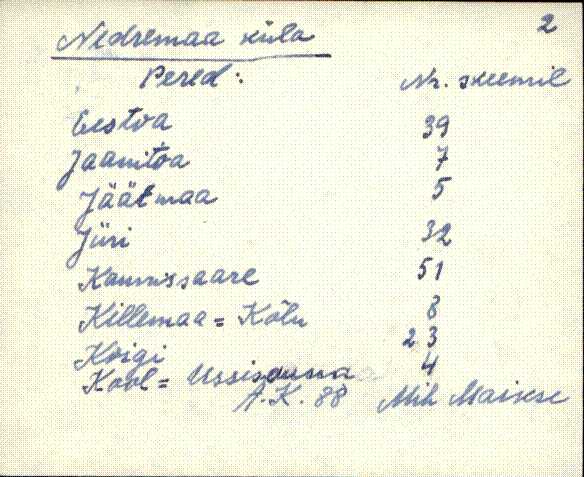 2
Nedremaa küla
Pered: Nr. skeemil
Eestoa 39
Jaanitoa 7
Jäätmaa 5
Jüri 32
Kannissaare 51
Killemaa = Kõlu 8
Kõigi 23
Kool = 4
A.K. 88 Mih Maisese